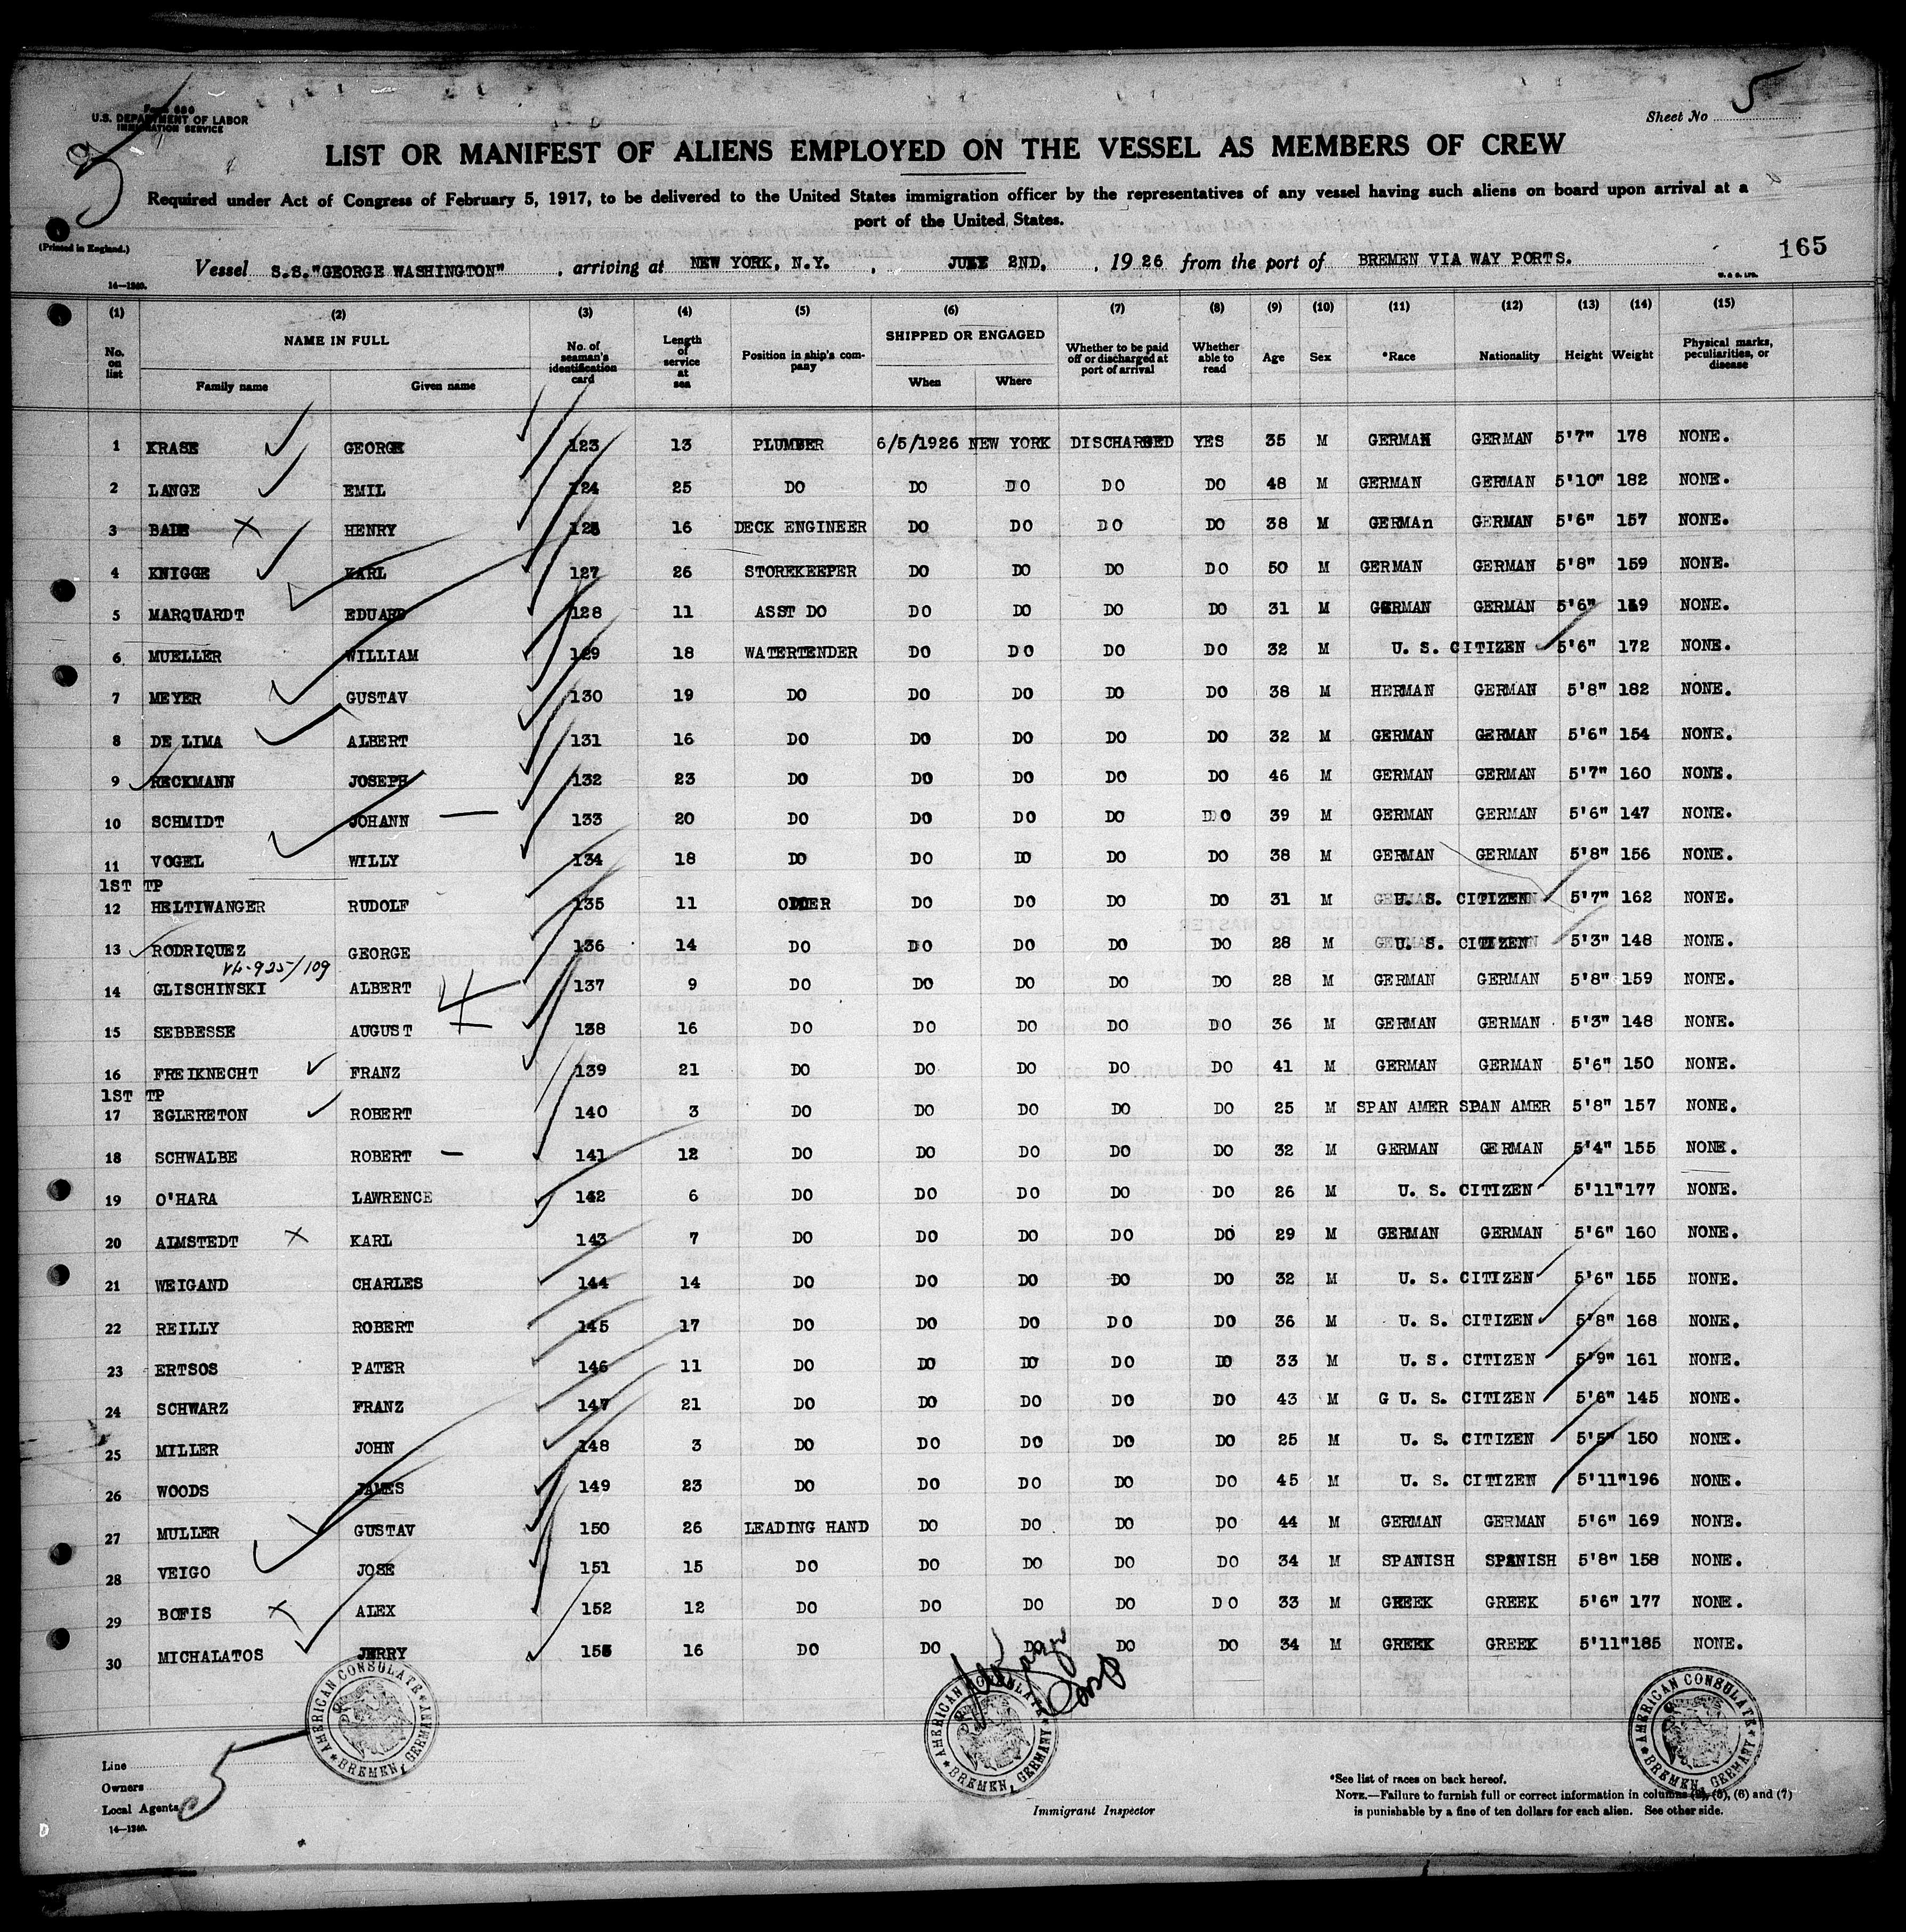 Form 680
U.S. DEPARTMENT OF LABOR
IMMIGRATION SERVICE
Sheet No 5
LIST OR MANIFEST OF ALIENS EMPLOYED ON THE VESSEL AS MEMBERS OF CREW
Required under Act of Congress of February 5, 1917, to be delivered to the United States immigration officer by the representatives of any vessel having such aliens on board upon arrival at a
port of the United States.
(Printed in England.)
165
Vessel S.S."GEORGE WASHINGTON", arriving at NEW YORK, N.Y., 2ND, 1926 from the port of BREMEN VIA WAY PORTS.
14—1240.
(1) (2) (3) (4) (5) (6) (7) (8) (9) (10) (11) (12) (13) (14) (15)
No. on list NAME IN FULL Family name Given name No. of seaman's identification card Length of service at sea Position in ship's company SHIPPED OR ENGAGED When Where Whether to be paid off or discharged at port of arrival Whether able to read Age Sex *Race Nationality Height Weight Physical marks, peculiarities, or disease
1 KRASE GEORGE 123 13 PLUMBER 6/5/1926 NEW YORK DISCHARGED YES 35 M GERMAN GERMAN 5'7" 178 NONE.
2 LANGE EMIL 124 25 DO DO DO DO DO 48 M GERMAN GERMAN 5'10" 182 NONE.
3 BADE HENRY 125 16 DECK ENGINEER DO DO DO DO 38 M GERMAn GERMAN 5'6" 157 NONE.
4 KNIGGE KARL 127 26 STOREKEEPER DO DO DO DO 50 M GERMAN GERMAN 5'8" 159 NONE.
5 MARQUARDT EDUARD 128 11 ASST DO DO DO DO DO 31 M GERMAN GERMAN 5'6" NONE.
6 MUELLER WILLIAM 129 18 WATERTENDER DO DO DO DO 32 M U. S. CITIZEN 5'6" 172 NONE.
7 MEYER GUSTAV 130 19 DO DO DO DO DO 38 M HERMAN GERMAN 5'8" 182 NONE.
8 DE LIMA ALBERT 131 16 DO DO DO DO DO 32 M GERMAN GERMAN 5'6" 154 NONE.
9 RECKMANN JOSEPH 132 23 DO DO DO DO DO 46 M GERMAN GERMAN 5'7" 160 NONE.
10 SCHMIDT JOHANN 133 20 DO DO DO DO DO 39 M GERMAN GERMAN 5'6" 147 NONE.
11 VOGEL WILLY 134 18 DO DO DO DO DO 38 M GERMAN GERMAN 5'8" 156 NONE.
1ST TP
12 HELTIWANGER RUDOLF 135 11 DO DO DO DO 31 M U. S. CITIZEN 5'7" 162 NONE.
13 RODRIQUEZ GEORGE 136 14 DO DO DO DO DO 28 M U. S. CITIZEN 5'3" 148 NONE.
925/109
14 GLISCHINSKI ALBERT 137 9 DO DO DO DO DO 28 M GERMAN GERMAN 5'8" 159 NONE.
15 SEBBESSE AUGUST 138 16 DO DO DO DO DO 36 M GERMAN GERMAN 5'3" 148 NONE.
16 FREIKNECHT FRANZ 139 21 DO DO DO DO DO 41 M GERMAN GERMAN 5'6" 150 NONE.
1ST TP
17 EGLERETON ROBERT 140 3 DO DO DO DO DO 25 M SPAN AMER SPAN AMER 5'8" 157 NONE.
18 SCHWALBE ROBERT 141 12 DO DO DO DO DO 32 M GERMAN GERMAN 5'4" 155 NONE.
19 O'HARA LAWRENCE 142 6 DO DO DO DO DO 26 M U. S. CITIZEN 5'11" 177 NONE.
20 ALMSTEDT KARL 143 7 DO DO DO DO DO 29 M GERMAN GERMAN 5'6" 160 NONE.
21 WEIGAND CHARLES 144 14 DO DO DO DO DO 32 M U. S. CITIZEN 5'6" 155 NONE.
22 REILLY ROBERT 145 17 DO DO DO DO DO 36 M U. S. CITIZEN 5'8" 168 NONE.
23 ERTSOS PATER 146 11 DO DO DO DO DO 33 M U. S. CITIZEN 5'9" 161 NONE.
24 SCHWARZ FRANZ 147 21 DO DO DO DO DO 43 M G U. S. CITIZEN 5'6" 145 NONE.
25 MILLER JOHN 148 3 DO DO DO DO DO 25 M U. S. CITIZEN 5'5" 150 NONE.
26 WOODS JAMES 149 23 DO DO DO DO DO 45 M U. S. CITIZEN 5'11" 196 NONE.
27 MULLER GUSTAV 150 26 LEADING HAND DO DO DO DO 44 M GERMAN GERMAN 5'6" 169 NONE.
28 VEIGO JOSE 151 15 DO DO DO DO DO 34 M SPANISH SPANISH 5'8" 158 NONE.
29 BOFIS ALEX 152 12 DO DO DO DO DO 33 M GREEK GREEK 5'6" 177 NONE.
30 MICHALATOS JERRY 153 16 DO DO DO DO DO 34 M GREEK GREEK 5'11" 185 NONE.
AMERICAN CONSULATE BREMEN, GERMANY
AMERICAN CONSULATE BREMEN, GERMANY
AMERICAN CONSULATE BREMEN, GERMANY
Line
Owners
Local Agents
5
14—1240.
Immigrant Inspector
*See list of races on back hereof.
NOTE.—Failure to furnish full or correct information in columns (2), (5), (6) and (7)
is punishable by a fine of ten dollars for each alien. See other side.